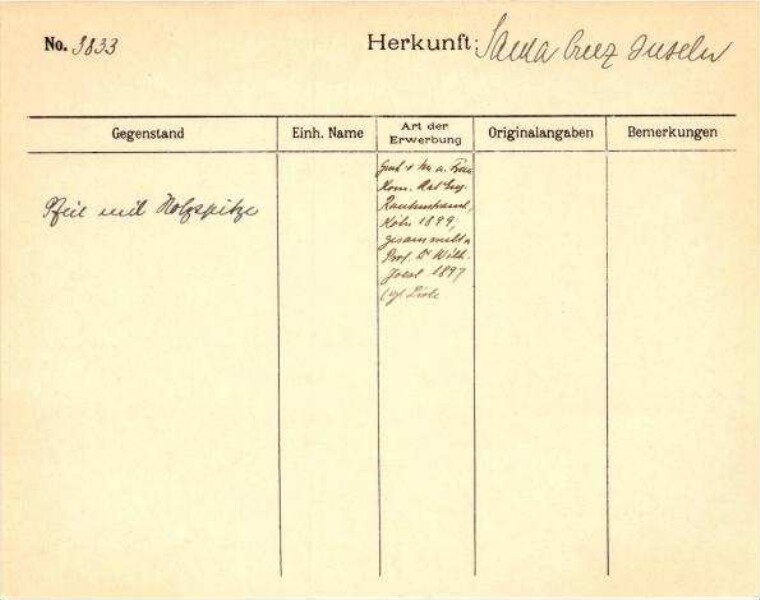 No. 3833
Herkunft: Santa Cruz Inseln
Gegenstand
Einh. Name
Art der Erwerbung
Originalangaben
Bemerkungen
Pfeil mit Holzspitze
Frau
Kom. Rat Eug.
Rautenstrauch,
Köln 1899,
gesammelt v
Prof. Dr Wilh.
Joest 1897
(vgl Liste